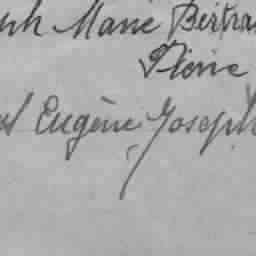 Marie Bertra
Pierre
Eugène Joseph